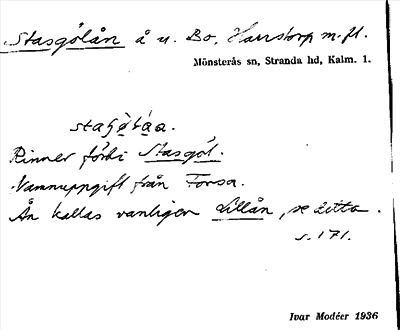 Stasgölån å u. Bo, Harstorp m. fl.
Mönsterås sn, Stranda hd, Kalm. l.
Rinner förbi Stasgöl.
Namnuppgift från Forsa.
Ån kallas vanligen Lillån, se detta.
s. 171.
Ivar Modéer 1936